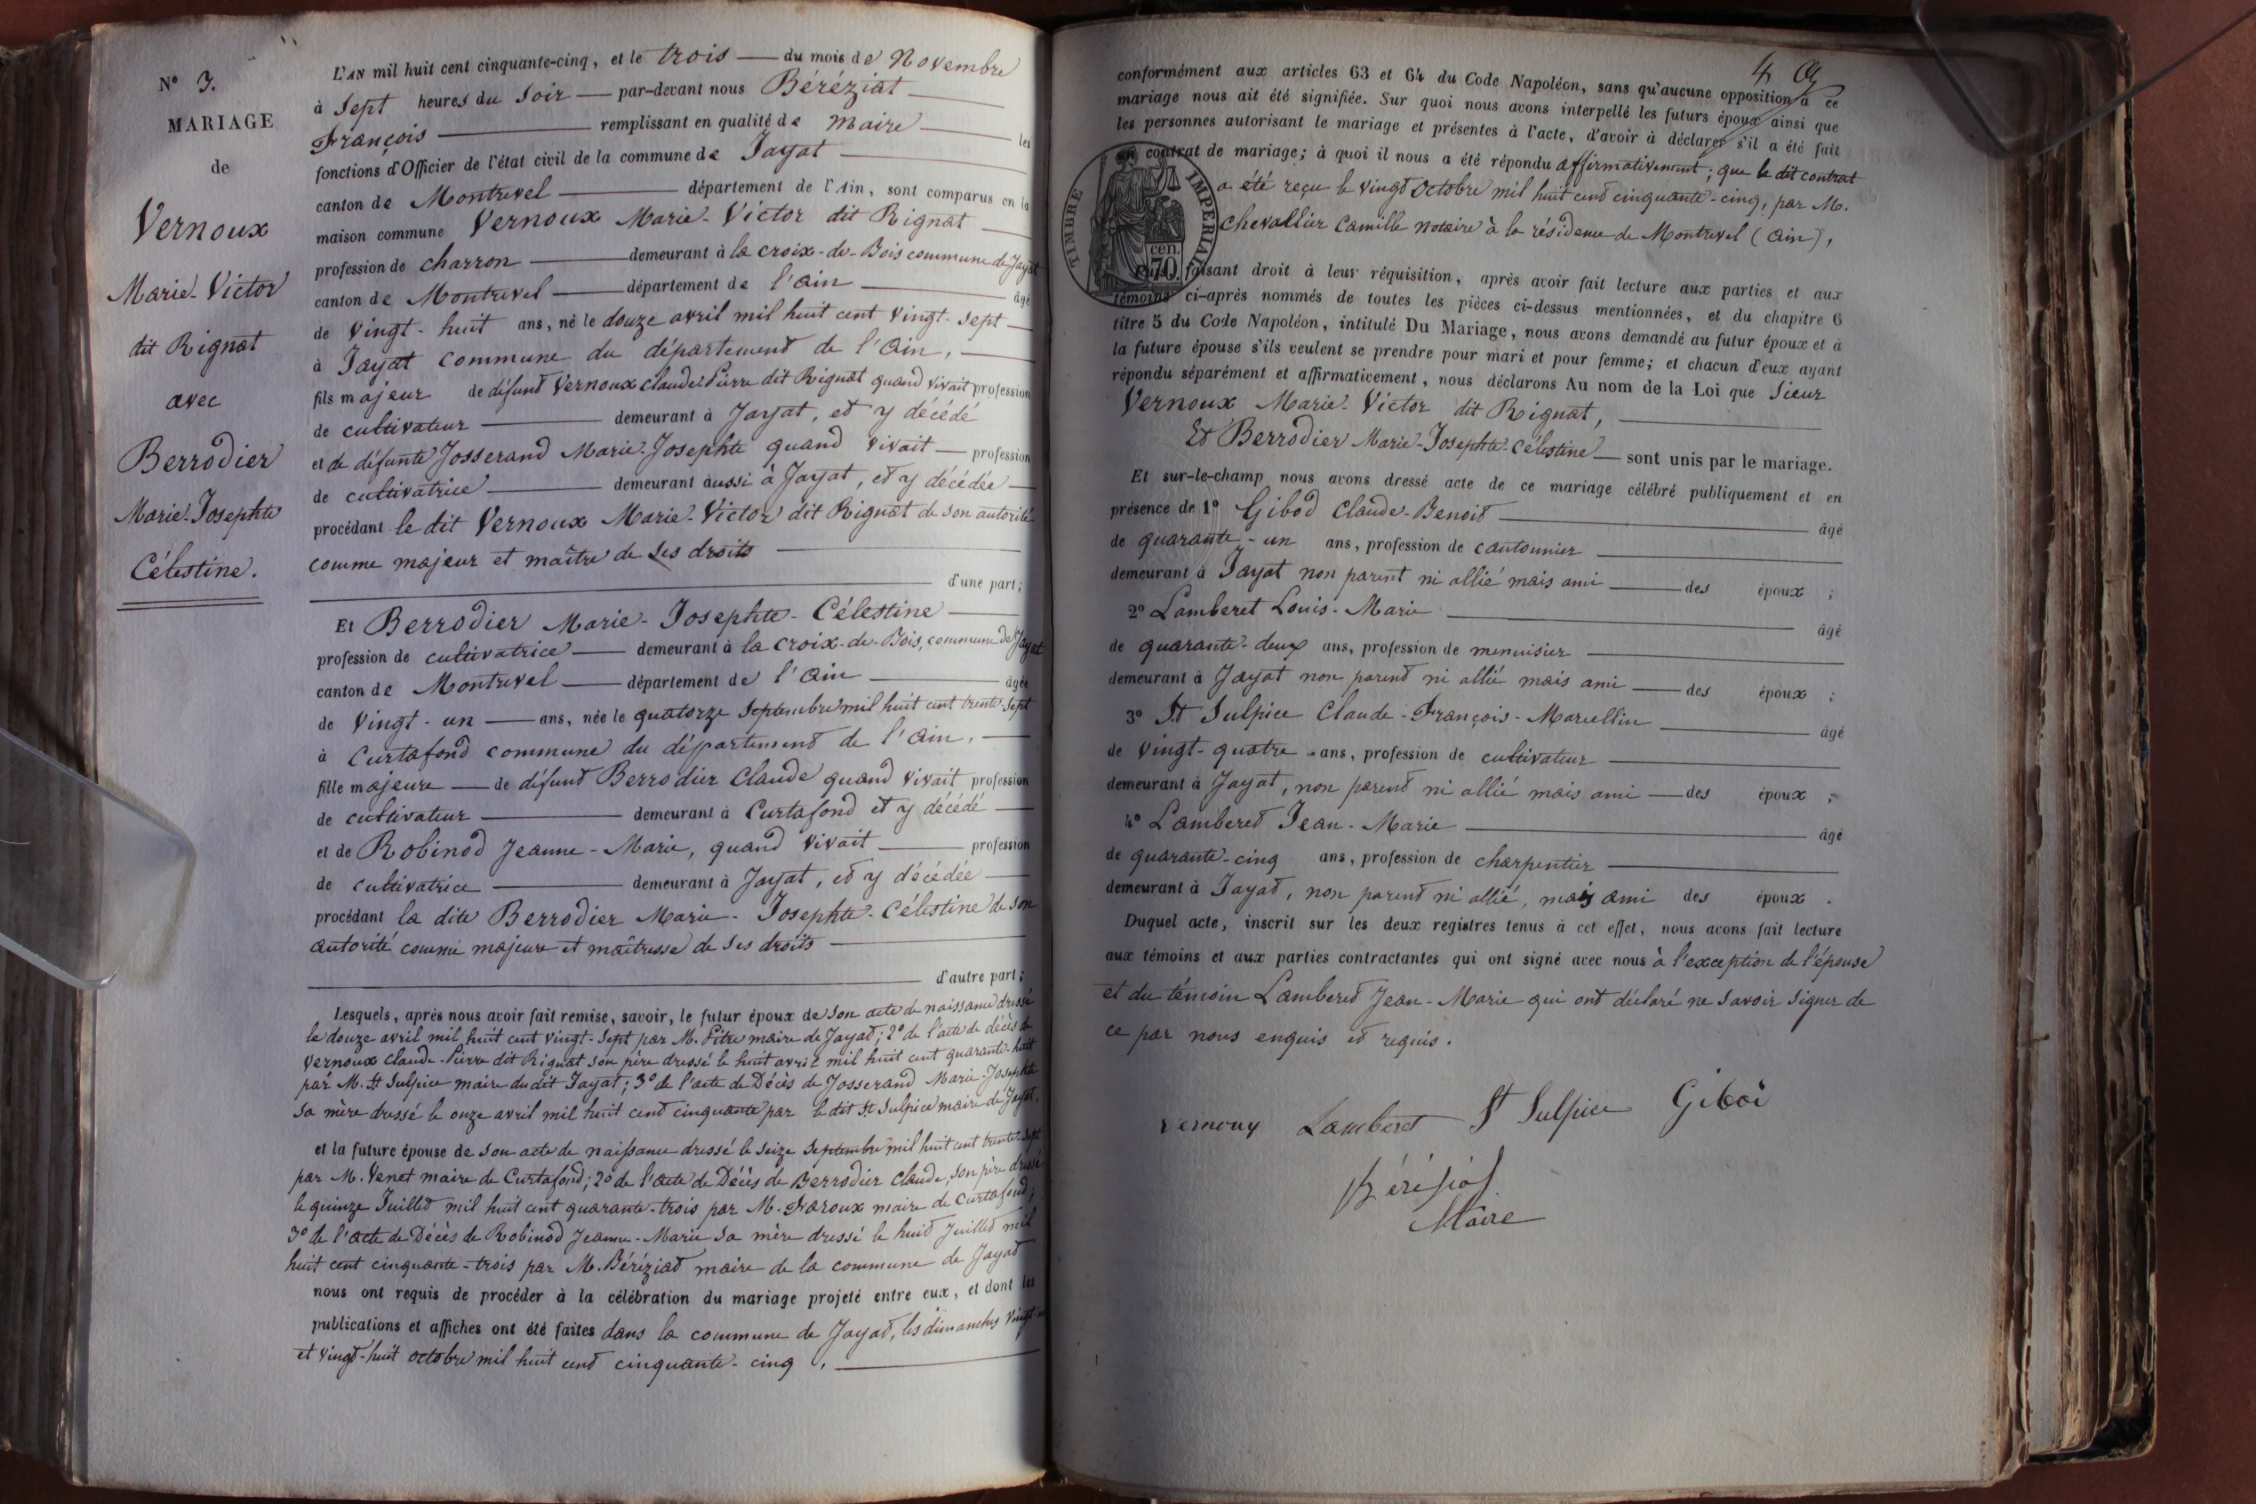 N° 3.
MARIAGE
de
Vernoux
Marie-Victor
dit Rignat
avec
Berrodier
Marie-Josephte
Célestine.
L'AN mil huit cent cinquante-cinq, et le trois du mois de Novembre
à Sept heures du Soir par-devant nous Béréziat
François remplissant en qualité de maire les
fonctions d'Officier de l'état civil de la commune de Jayat
canton de Montrevel département de l'Ain, sont comparus en la
maison commune Vernoux Marie-Victor dit Rignat
profession de charron demeurant à la croix-de-Bois commune de Jayat
canton de Montrevel département de l'Ain âgé
de Vingt-huit ans, né le douze avril mil huit cent vingt-sept
à Jayat commune du département de l'Ain,
fils majeur de défunt Vernoux Claude-Pierre dit Rignat quand vivait profession
de cultivateur demeurant à Jayat, et y décédé
et de défunte Josserand Marie-Josephte quand vivait profession
de cultivatrice demeurant aussi à Jayat, et y décédée
procédant le dit Vernoux Marie-Victor dit Rignat de son autorité
comme majeur et maître de ses droits
d'une part;
Et Berrodier Marie-Josephte-Célestine
profession de cultivatrice demeurant à la croix-de-Bois, commune de Jayat
canton de Montrevel département de l'Ain âgée
de Vingt-un ans, née le quatorze Septembre mil huit cent trente-sept
à Curtafond commune du département de l'Ain,
fille majeure de défunt Berrodier Claude quand vivait profession
de cultivateur demeurant à Curtafond et y décédé
et de Robinod Jeanne-Marie, quand vivait profession
de cultivatrice demeurant à Jayat, et y décédée
procédant la dite Berrodier Marie-Josephte-Célestine de son
autorité comme majeure et maîtresse de ses droits
d'autre part;
Lesquels, après nous avoir fait remise, savoir, le futur époux de son acte de naissance dressé
le douze avril mil huit cent vingt-sept par M. Pitre maire de Jayat; 2° de l'acte de décès de
Vernoux Claude-Pierre dit Rignat son père dressé le huit avril mil huit cent quarante-huit
par M. St Sulpice maire du dit Jayat; 3° de l'acte de Décès de Josserand Marie-Josephte
sa mère dressé le onze avril mil huit cent cinquante par le dit St Sulpice maire de Jayat.
et la future épouse de son acte de naissance dressé le seize Septembre mil huit cent trente-sept
par M. Venet maire de Curtafond; 2° de l'acte de Décès de Berrodier Claude, son père dressé
le quinze Juillet mil huit cent quarante-trois par M. Faroux maire de Curtafond;
3° de l'acte de Décès de Robinod Jeanne-Marie sa mère dressé le huit Juillet mil
huit cent cinquante-trois par M. Béréziat maire de la commune de Jayat
nous ont requis de procéder à la célébration du mariage projeté entre eux, et dont les
publications et affiches ont été faites dans la commune de Jayat, les dimanches Vingt-un
et vingt-huit octobre mil huit cent cinquante-cinq,
4
conformément aux articles 63 et 64 du Code Napoléon, sans qu'aucune opposition à ce
mariage nous ait été signifiée. Sur quoi nous avons interpellé les futurs époux ainsi que
les personnes autorisant le mariage et présentes à l'acte, d'avoir à déclarer s'il a été fait
un contrat de mariage; à quoi il nous a été répondu affirmativement; que le dit contrat
a été reçu le vingt octobre mil huit cent cinquante-cinq, par M.
Chevallier Camille notaire à la résidence de Montrevel (Ain),
TIMBRE IMPERIAL
70 cen.
Puis, faisant droit à leur réquisition, après avoir fait lecture aux parties et aux
témoins ci-après nommés de toutes les pièces ci-dessus mentionnées, et du chapitre 6
titre 5 du Code Napoléon, intitulé Du Mariage, nous avons demandé au futur époux et à
la future épouse s'ils veulent se prendre pour mari et pour femme; et chacun d'eux ayant
répondu séparément et affirmativement, nous déclarons Au nom de la Loi que Sieur
Vernoux Marie-Victor dit Rignat,
Et Berrodier Marie-Josephte-Célestine sont unis par le mariage.
Et sur-le-champ nous avons dressé acte de ce mariage célébré publiquement et en
présence de 1° Gibod Claude-Benoit âgé
de quarante-un ans, profession de cantonnier
demeurant à Jayat non parent ni allié mais ami des époux ;
2° Lamberet Louis-Marie âgé
de quarante-deux ans, profession de menuisier
demeurant à Jayat non parent ni allié mais ami des époux ;
3° St Sulpice Claude-François-Marcellin âgé
de vingt-quatre ans, profession de cultivateur
demeurant à Jayat, non parent ni allié mais ami des époux ;
4° Lamberet Jean-Marie âgé
de quarante-cinq ans, profession de charpentier
demeurant à Jayat, non parent ni allié, mais ami des époux .
Duquel acte, inscrit sur les deux registres tenus à cet effet, nous avons fait lecture
aux témoins et aux parties contractantes qui ont signé avec nous à l'exception de l'épouse
et du témoin Lamberet Jean-Marie qui ont déclaré ne savoir signer de
ce par nous enquis et requis.
Vernoux Lamberet St Sulpice Gibod
Béréziat
Maire